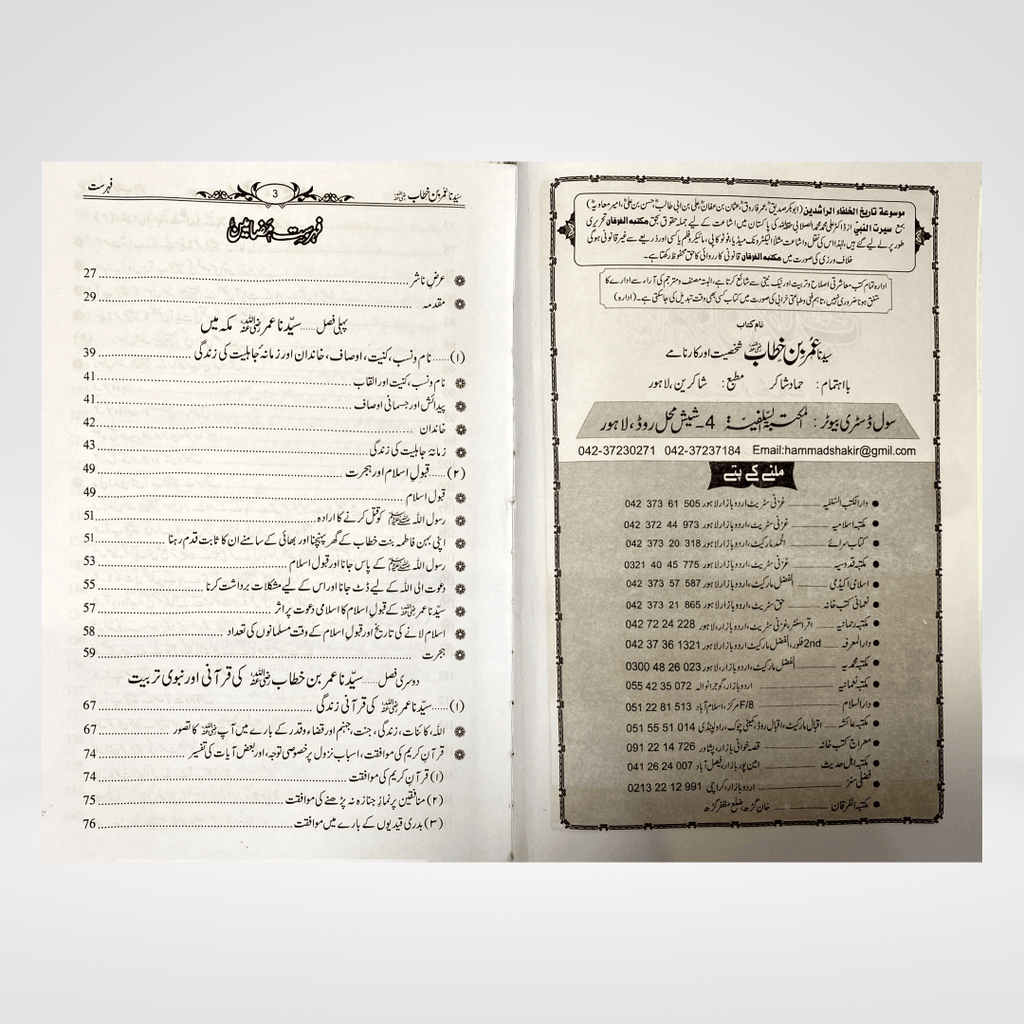 موسوعة تاريخ الخلفاء الراشدين (ابوبکر صدیقؓ، عمر فاروقؓ، عثمان بن عفانؓ، علی بن ابی طالبؓ، حسن بن علیؓ، امیر معاویہؓ)
بمع سیرت النبیﷺ از ڈاکٹر علی محمد محمد الصلابی حفظہ اللہ کی پاکستان میں اشاعت کے لیے جملہ حقوق بحق مکتبہ الفرقان تحریری
طور پر لے لیے گئے ہیں، لہٰذا اس کی نقل و اشاعت مثلاً الیکٹرونک میڈیا، فوٹو کاپی، مائیکرو فلم یا کسی اور ذریعے سے غیر قانونی ہوگی
خلاف ورزی کی صورت میں مکتبہ الفرقان قانونی کاروائی کا حق محفوظ رکھتا ہے۔
ادارہ تمام کتب معاشرتی اصلاح و تربیت اور نیک نیتی سے شائع کرتا ہے، البتہ مصنف و مترجم کی آراء سے ادارے کا
متفق ہونا ضروری نہیں، تاہم فنی و طباعتی خرابی کی صورت میں کتاب کسی بھی وقت تبدیل کی جاسکتی ہے۔ (ادارہ)
نام کتاب
سیدنا عمر بن خطاب رضی اللہ عنہ شخصیت اور کارنامے
بااہتمام: حماد شاکر مطبع: شاکرین، لاہور
سول ڈسٹری بیوٹر: المکتبۃ السلفیۃ 4-شیش محل روڈ، لاہور
042-37230271 042-37237184 Email:hammadshakir@gmil.com
ملنے کے پتے
دارالکتب السلفیہ غزنی سٹریٹ اردو بازار لاہور 505 61 373 042
مکتبہ اسلامیہ غزنی سٹریٹ، اردو بازار لاہور 973 44 372 042
کتاب سرائے الحمد مارکیٹ، اردو بازار لاہور 318 20 373 042
مکتبہ قدوسیہ غزنی سٹریٹ، اردو بازار لاہور 775 45 40 0321
اسلامی اکیڈمی الفضل مارکیٹ، اردو بازار لاہور 587 57 373 042
نعمانی کتب خانہ حق سٹریٹ، اردو بازار لاہور 865 21 373 042
مکتبہ رحمانیہ اقراء سنٹر، غزنی سٹریٹ، اردو بازار، لاہور 228 24 72 042
دارالمعرفہ 2nd فلور، الفضل مارکیٹ اردو بازار لاہور 1321 36 37 042
مکتبہ محمدیہ الفضل مارکیٹ، اردو بازار، لاہور 023 26 48 0300
مکتبہ نعمانیہ اردو بازار، گوجرانوالہ 072 35 42 055
دارالسلام F/8 مرکز، اسلام آباد 513 81 22 051
مکتبہ عائشہ اقبال مارکیٹ، اقبال روڈ، کمیٹی چوک، راولپنڈی 014 51 55 051
معراج کتب خانہ قصہ خوانی بازار، پشاور 726 14 22 091
مکتبہ اہل حدیث امین پور بازار، فیصل آباد 007 24 26 041
فضلی سنز اردو بازار، کراچی 991 12 22 0213
مکتبہ الفرقان خان گڑھ ضلع مظفر گڑھ
سیّدنا عمر بن خطاب رضی اللہ عنہ 3 فہرست
فہرست مضامین
عرض ناشر 27
مقدمہ 29
پہلی فصل ..... سیّدنا عمر رضی اللہ عنہ مکہ میں
(۱) ..... نام و نسب، کنیت، اوصاف، خاندان اور زمانۂ جاہلیت کی زندگی 39
نام و نسب، کنیت اور القاب 41
پیدائش اور جسمانی اوصاف 41
خاندان 42
زمانہ جاہلیت کی زندگی 43
(۲) ..... قبول اسلام اور ہجرت 49
قبول اسلام 49
رسول اللہ ﷺ کو قتل کرنے کا ارادہ 51
اپنی بہن فاطمہ بنت خطاب کے گھر پہنچنا اور بھائی کے سامنے ان کا ثابت قدم رہنا 51
رسول اللہ ﷺ کے پاس جانا اور قبول اسلام 53
دعوت الی اللہ کے لیے ڈٹ جانا اور اس کے لیے مشکلات برداشت کرنا 55
سیّدنا عمر رضی اللہ عنہ کے قبول اسلام کا اسلامی دعوت پر اثر 57
اسلام لانے کی تاریخ اور قبول اسلام کے وقت مسلمانوں کی تعداد 58
ہجرت 59
دوسری فصل ..... سیّدنا عمر بن خطاب رضی اللہ عنہ کی قرآنی اور نبوی تربیت
(۱) ..... سیّدنا عمر رضی اللہ عنہ کی قرآنی زندگی 67
اللہ، کائنات، زندگی، جنت، جہنم اور قضاء و قدر کے بارے میں آپ رضی اللہ عنہ کا تصور 67
قرآن کریم کی موافقت، اسباب نزول پر خصوصی توجہ، اور بعض آیات کی تفسیر 74
(۱) قرآن کریم کی موافقت 74
(۲) منافقین پر نماز جنازہ نہ پڑھنے کی موافقت 75
(۳) بدری قیدیوں کے بارے میں موافقت 76